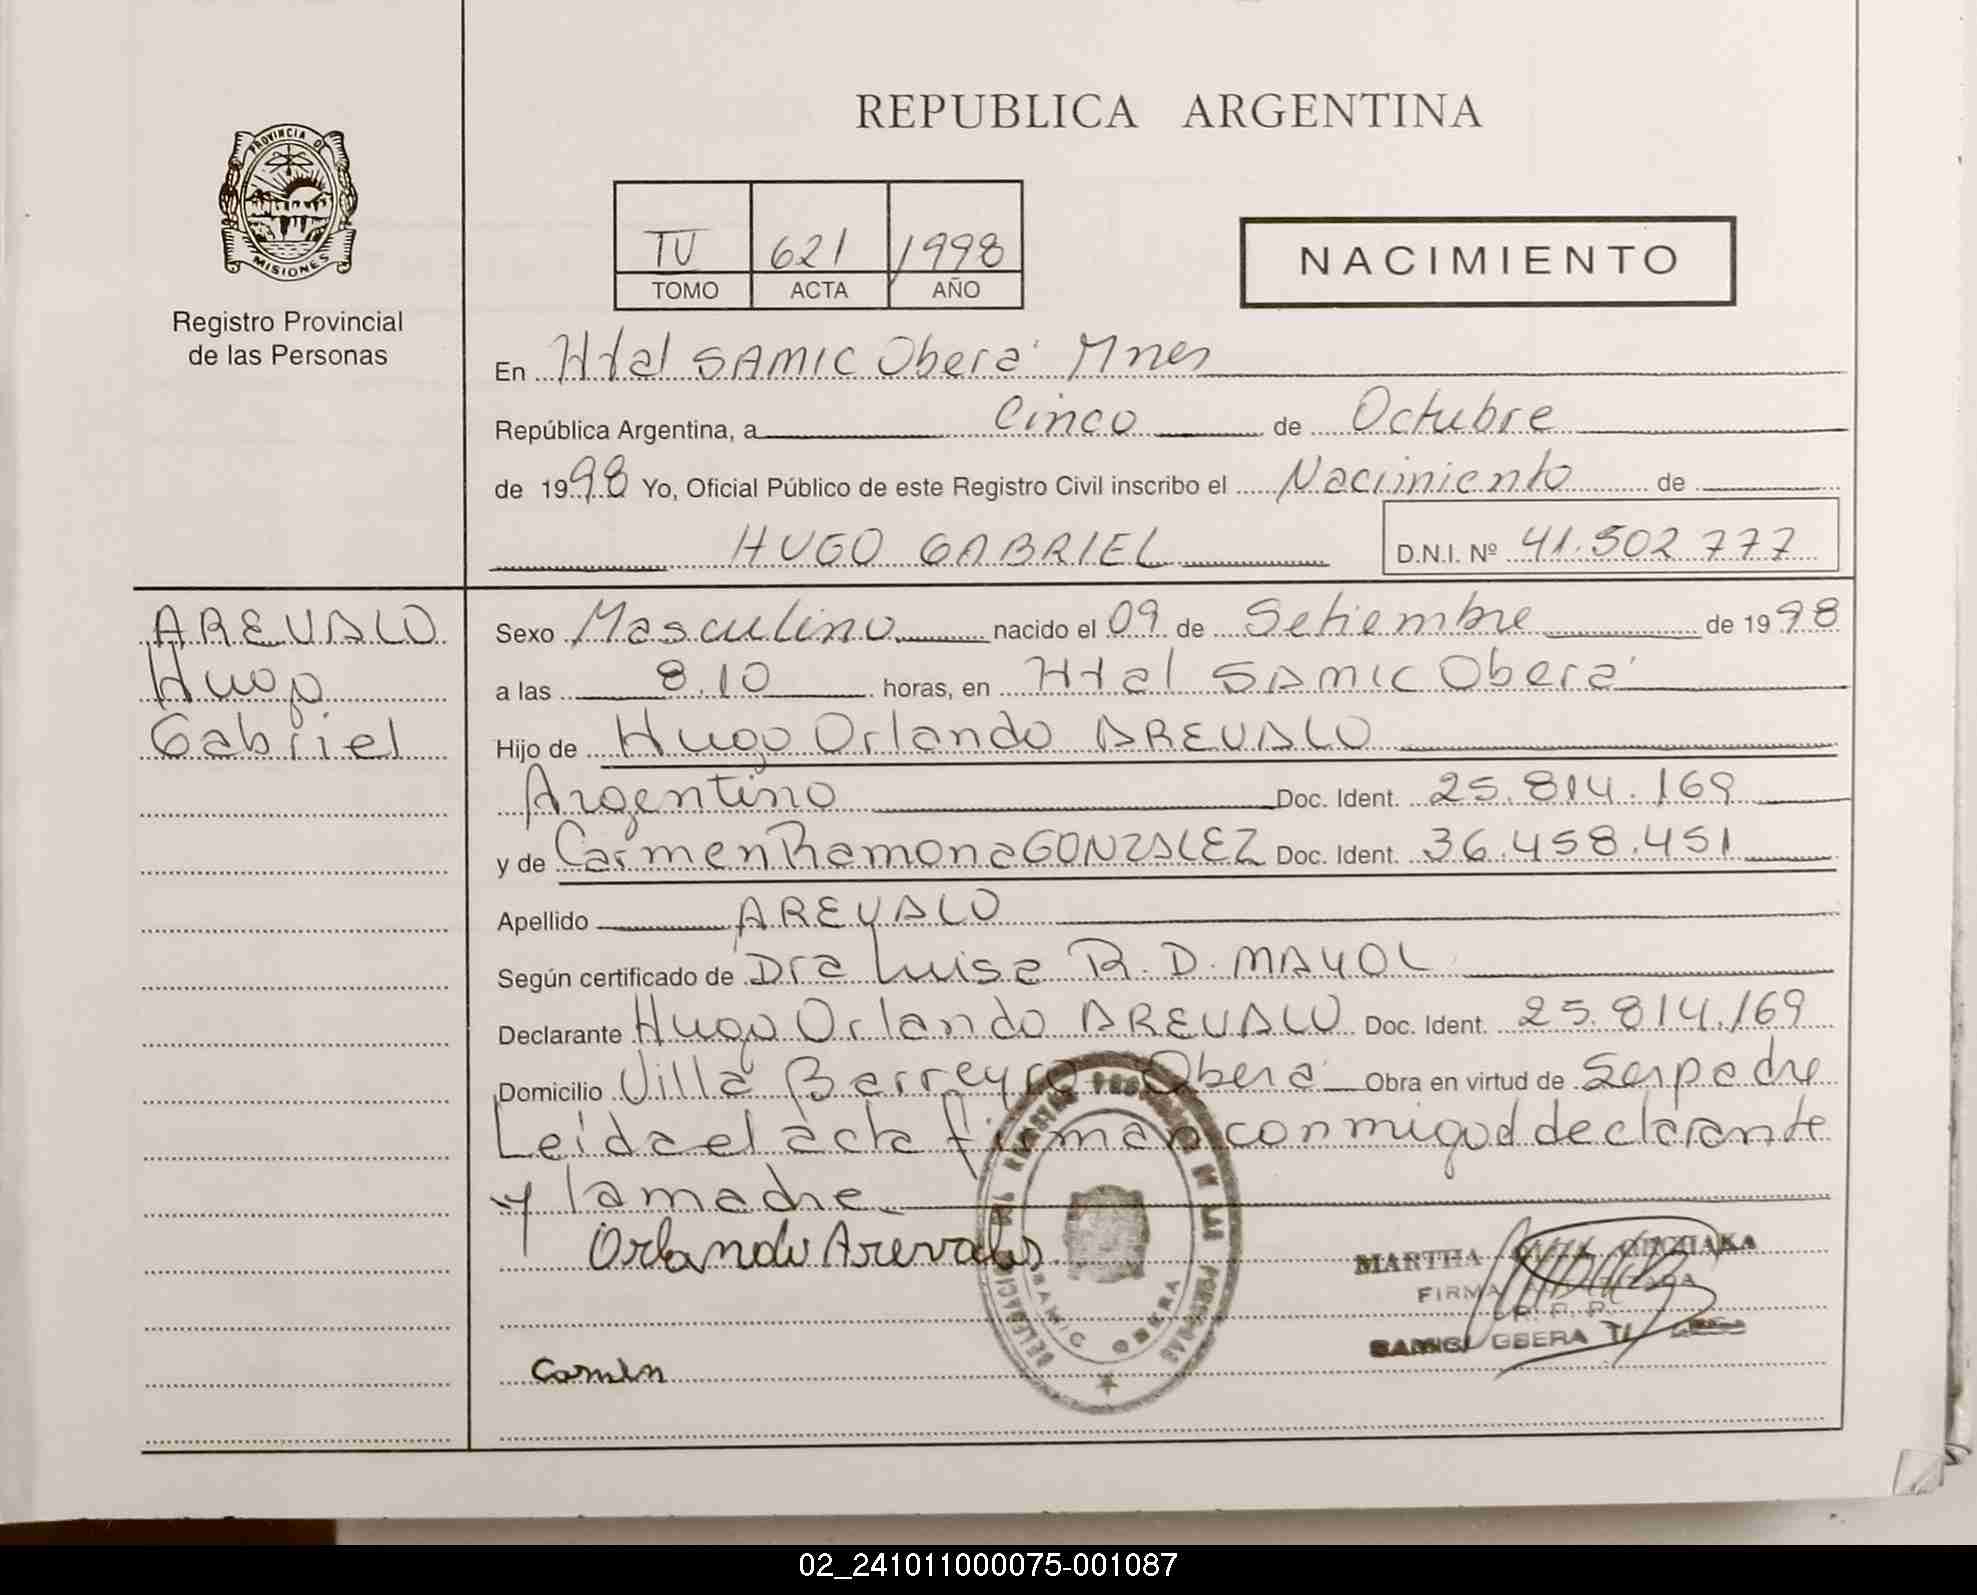 REPUBLICA ARGENTINA
PROVINCIA DE
MISIONES
Registro Provincial
de las Personas
TU 621 1998
TOMO ACTA AÑO
NACIMIENTO
En Htal SAMIC Oberá Mnes
República Argentina, a Cinco de Octubre
de 1998 Yo, Oficial Público de este Registro Civil inscribo el Nacimiento de
HUGO GABRIEL D.N.I. Nº 41.502.777
AREVALO
Hugo
Gabriel
Sexo Masculino nacido el 09 de Setiembre de 1998
a las 8.10 horas, en Htal SAMIC Oberá
Hijo de Hugo Orlando AREVALO
Argentino Doc. Ident. 25.814.169
y de Carmen Ramona GONZALEZ Doc. Ident. 36.458.451
Apellido AREVALO
Según certificado de Dra Luisa R. D. MAYOL
Declarante Hugo Orlando AREVALO Doc. Ident. 25.814.169
Domicilio Villa Barreyro Oberá Obra en virtud de Ser padre
Leída el acta firman conmigo el declarante
y la madre
Orlando Arevalos
MARTHA
FIRMA
R. P. P.
SAMIC OBERA
Carmen
DELEGACION DEL REGISTRO PROVINCIAL DE LAS PERSONAS
SAMIC OBERA
02_241011000075-001087